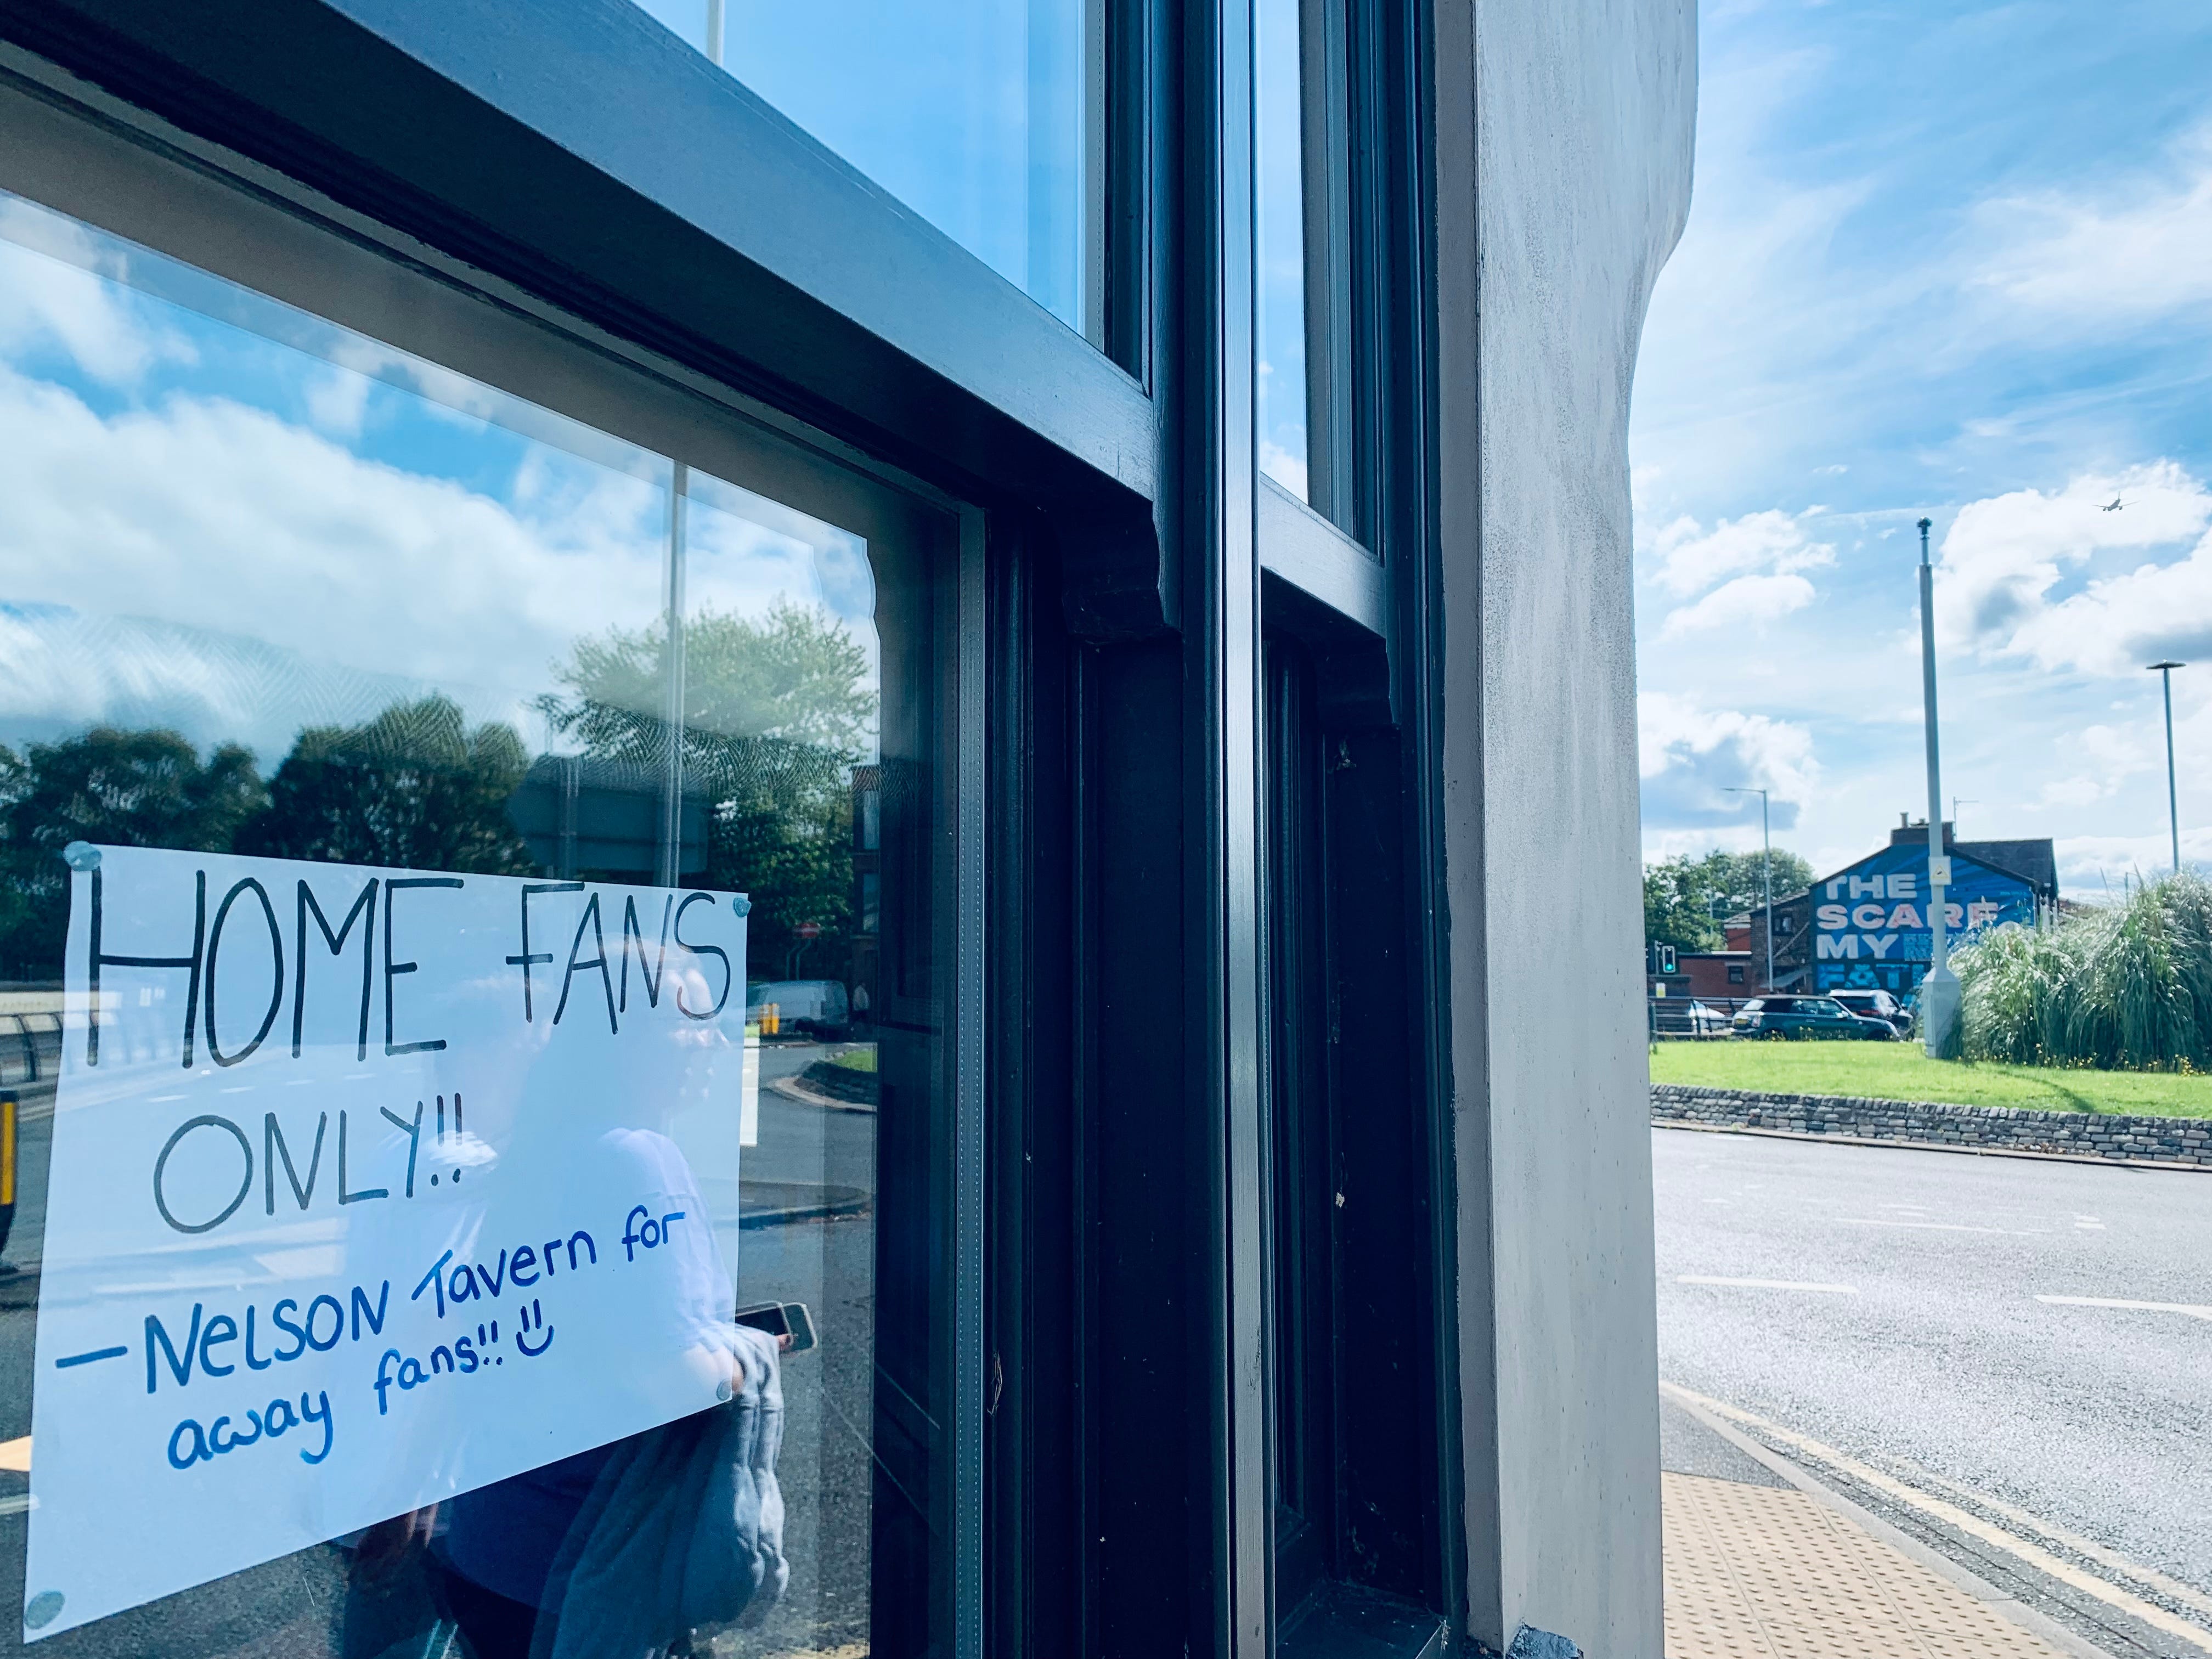 HOME FANS
ONLY!!
— NELSON Tavern for
away fans!!
THE
SCARF
MY